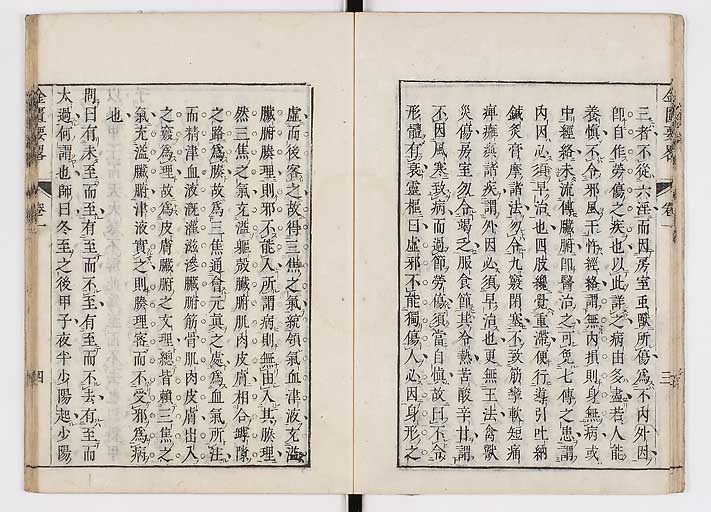 三者不從六淫而因房室蟲獸所傷爲不內外因
卽自作勞傷之疾也以此詳之病由多盡若人能
養慎不令邪風干忤經絡謂無內損則身無病或
中經絡未流傳臟腑卽醫治之可免七傳之患謂
內因必須早治也四肢纔覺重滯便行導引吐納
鍼灸膏摩諸法勿令九竅閉塞不致筋攣軟短痛
痺痲諸疾謂外因必須早治也更無王法禽獸
災傷房室勿令竭乏服食節其冷熱苦酸辛甘謂
不因風寒致病而過節勞傷須當自慎故曰不令
形體有衰靈樞曰虛邪不能獨傷人必因身形之
金匱要畧
卷一
三
虛而後客之故得三焦之氣統領氣血津液充溢
臟腑腠理則邪不能入所謂病則無由入其腠理
然三焦之氣充溢軀殼臟腑肌肉皮膚相合罅隙
之路爲腠故爲三焦通會元真之處爲血氣所注
而精津血液溉灌滋滲臟腑筋骨肌肉皮膚出入
之竅爲理故爲皮膚臟腑之文理總皆賴三焦之
氣充溢臟腑津液實之則腠理密而不受邪爲病
也
問曰有未至而至有至而不至有至而不去有至而
太過何謂也師曰冬至之後甲子夜半少陽起少陽
金匱要畧
卷一
四